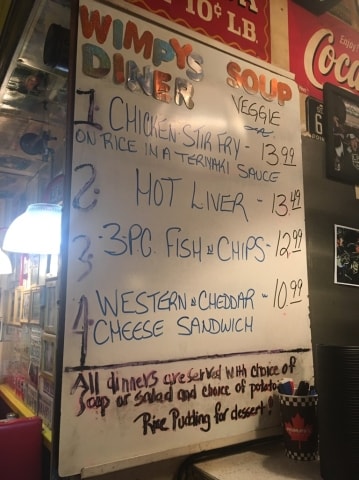 10¢ LB.
Enjoy
Coca
WIMPY'S SOUP
DINER VEGGIE
1. CHICKEN STIR FRY - 13.99
ON RICE IN A TERIYAKI SAUCE
2. HOT LIVER - 13.49
3. 3PC. FISH & CHIPS - 12.99
4. WESTERN & CHEDDAR - 10.99
CHEESE SANDWICH
All dinners are served with choice of
soup or salad and choice of potato
Rice Pudding for dessert!